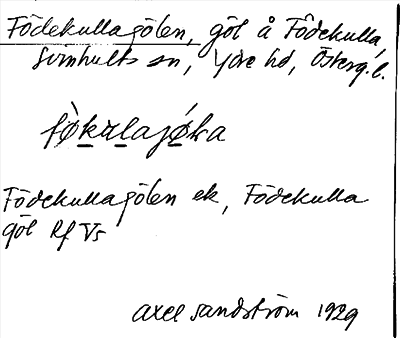 Födekullagölen, göl å Födekulla,
Svinhults sn, Ydre hd, Österg. l.
fø̀kulajǿka
Födekullagölen ek, Födekulla
göl Rf Vs
Axel Sandström 1929